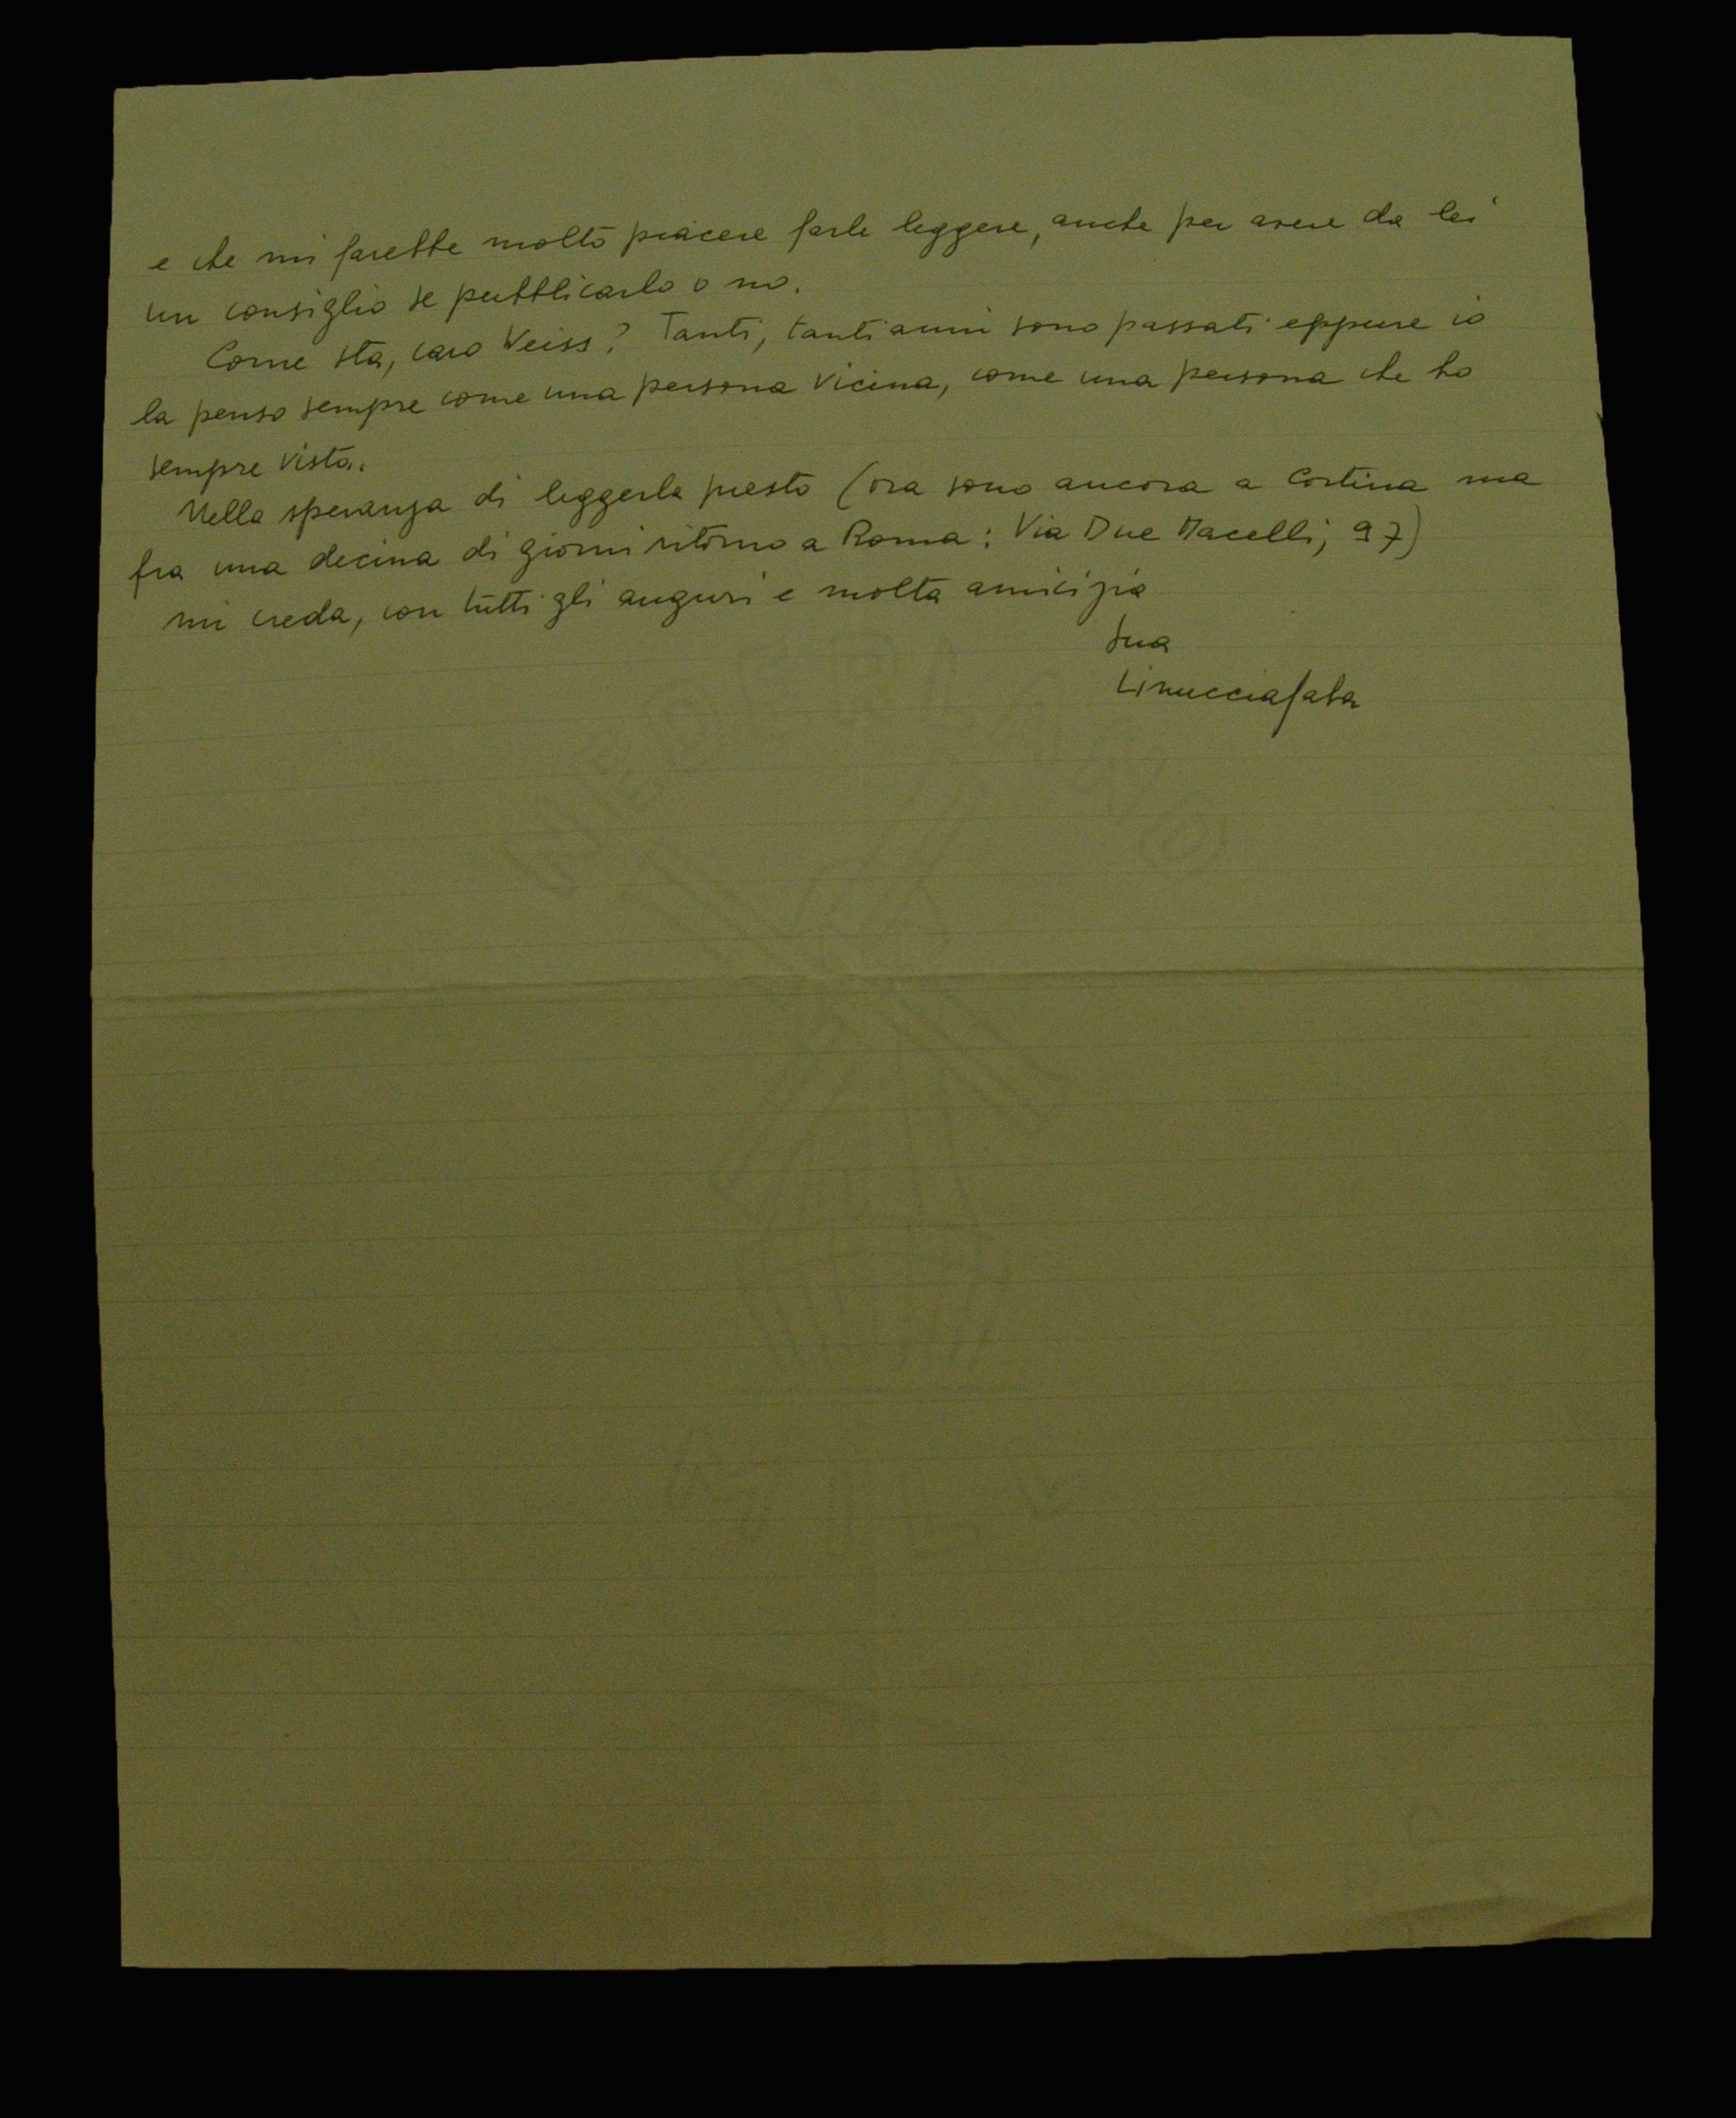 e che mi farebbe molto piacere farle leggere, anche per avere da lei
un consiglio se pubblicarlo o no.
Come sta, caro Weiss? Tanti, tanti anni sono passati eppure io
la penso sempre come una persona vicina, come una persona che ho
sempre vista.
Nella speranza di leggerla presto (ora sono ancora a Cortina ma
fra una decina di giorni ritorno a Roma: Via Due Macelli, 97)
mi creda, con tutti gli auguri e molta amicizia
sua
Linuccia Saba